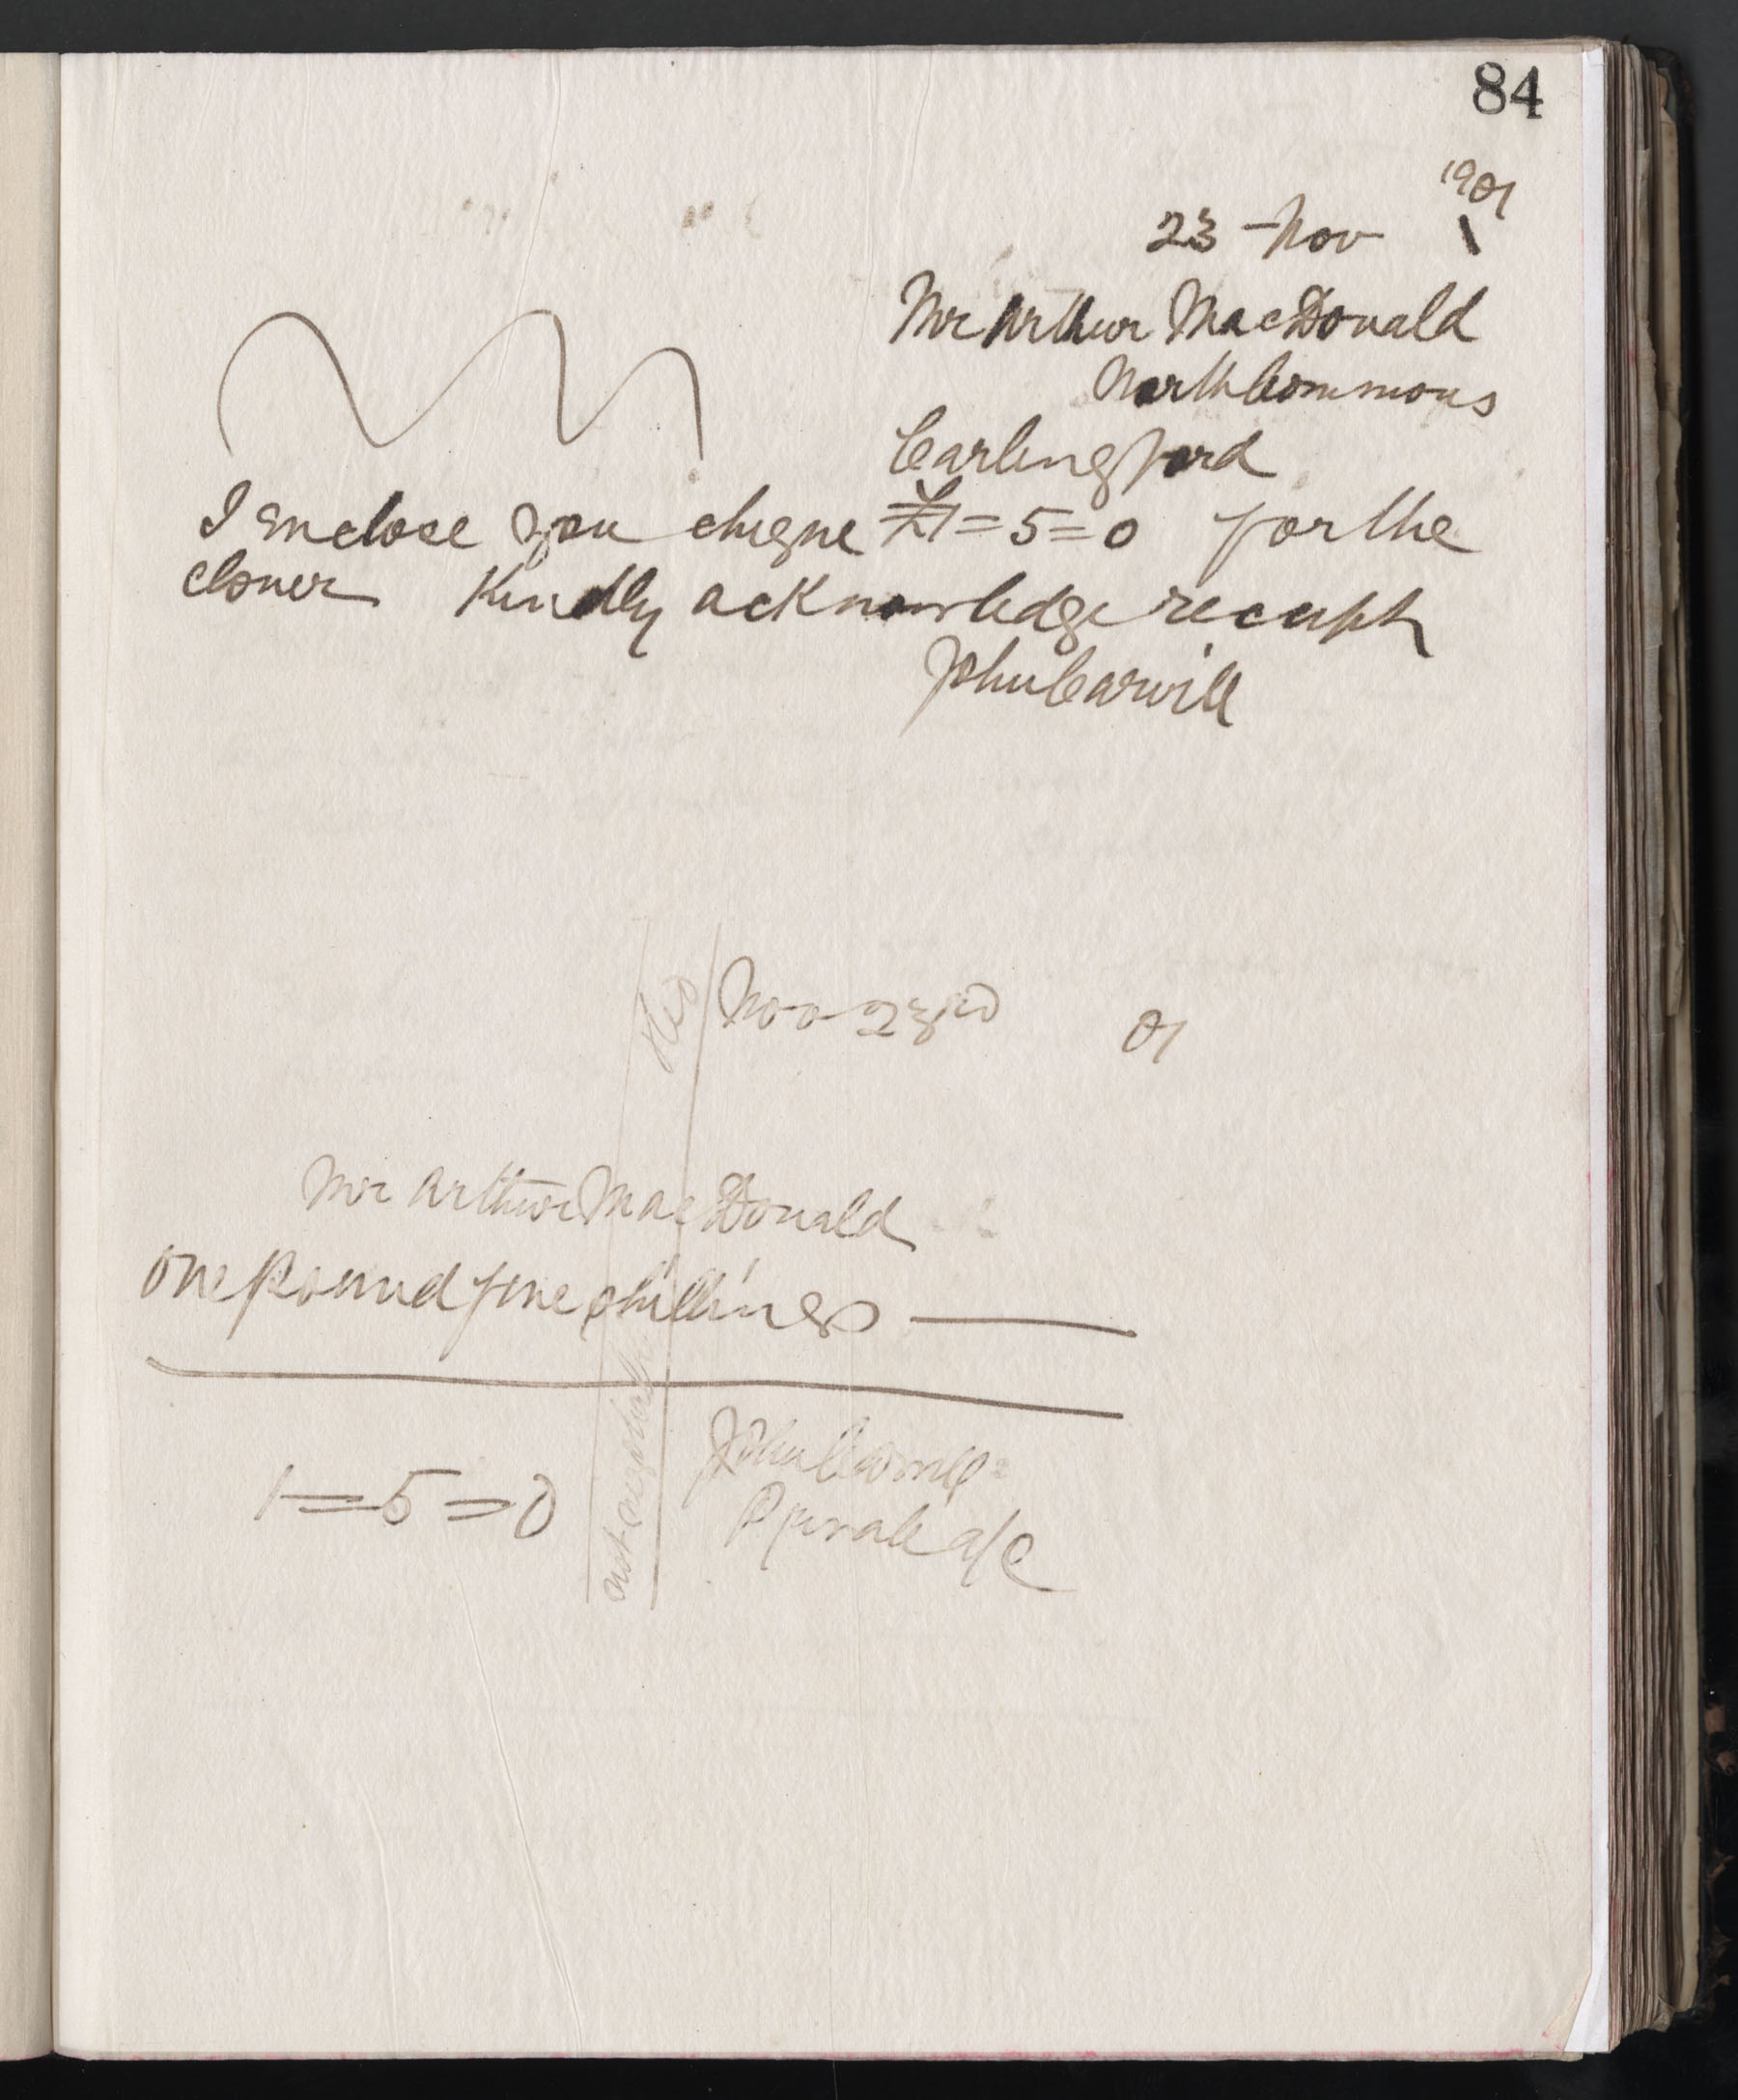 84
1901
23 - Nov
Mr Arthur MacDonald
North Commons
Carlingford
I enclose you cheque £1=5=0 for the
clover Kindly acknowledge receipt
John Carvill
Nov 23rd 01
Mr Arthur MacDonald
One Pound five shillings
1=5=0
not negotiable
John Carvill
Private a/c